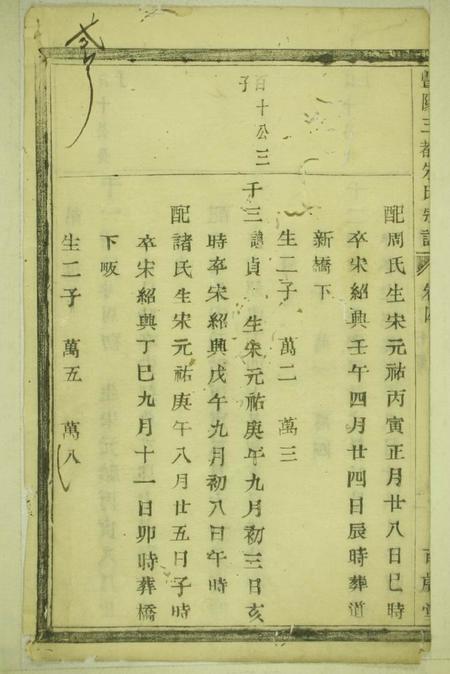 三都朱氏宗譜
配周氏生宋元祐丙寅正月廿八日巳時
卒宋紹興壬午四月廿四日辰時葬道
新橋下
生二子 萬二 萬三
百十公三
子
千三 諱貞 生宋元祐庚午九月初三日亥
時卒宋紹興戊午九月初八日午時
配諸氏生宋元祐庚午八月廿五日子時
卒宋紹興丁巳九月十一日卯時葬橋
下畈
生二子 萬五 萬八